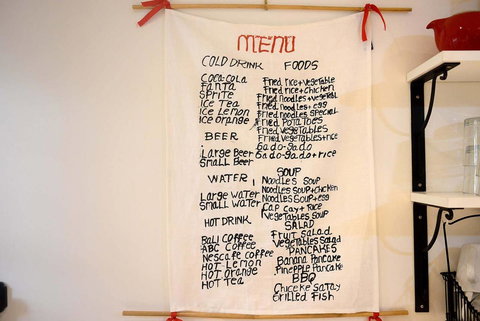 MENU
COLD DRINK
Coca-Cola
Fanta
Sprite
Ice Tea
Ice Lemon
Ice Orange
BEER
Large Beer
Small Beer
WATER
Large water
Small water
HOT DRINK
Bali Coffee
ABC Coffee
Nescafe coffee
HOT Lemon
HOT Orange
HOT Tea
FOODS
Fried rice+vegetable
Fried rice+chicken
Fried Noodles+vegetabl
Fried Noodles+egg
Fried noodles special
Fried Potatoes
Fried vegetables
Fried vegetables+rice
Gado-gado
Gado-gado+rice
SOUP
Noodles Soup
Noodles Soup+chicken
Noodles Soup+egg
Cap Cay+Rice
Vegetables Soup
SALAD
Fruit Salad
Vegetables Salad
PANCAKES
Banana Pancake
Pineapple Pancake
BBQ
Chiceke Satay
Grilled Fish